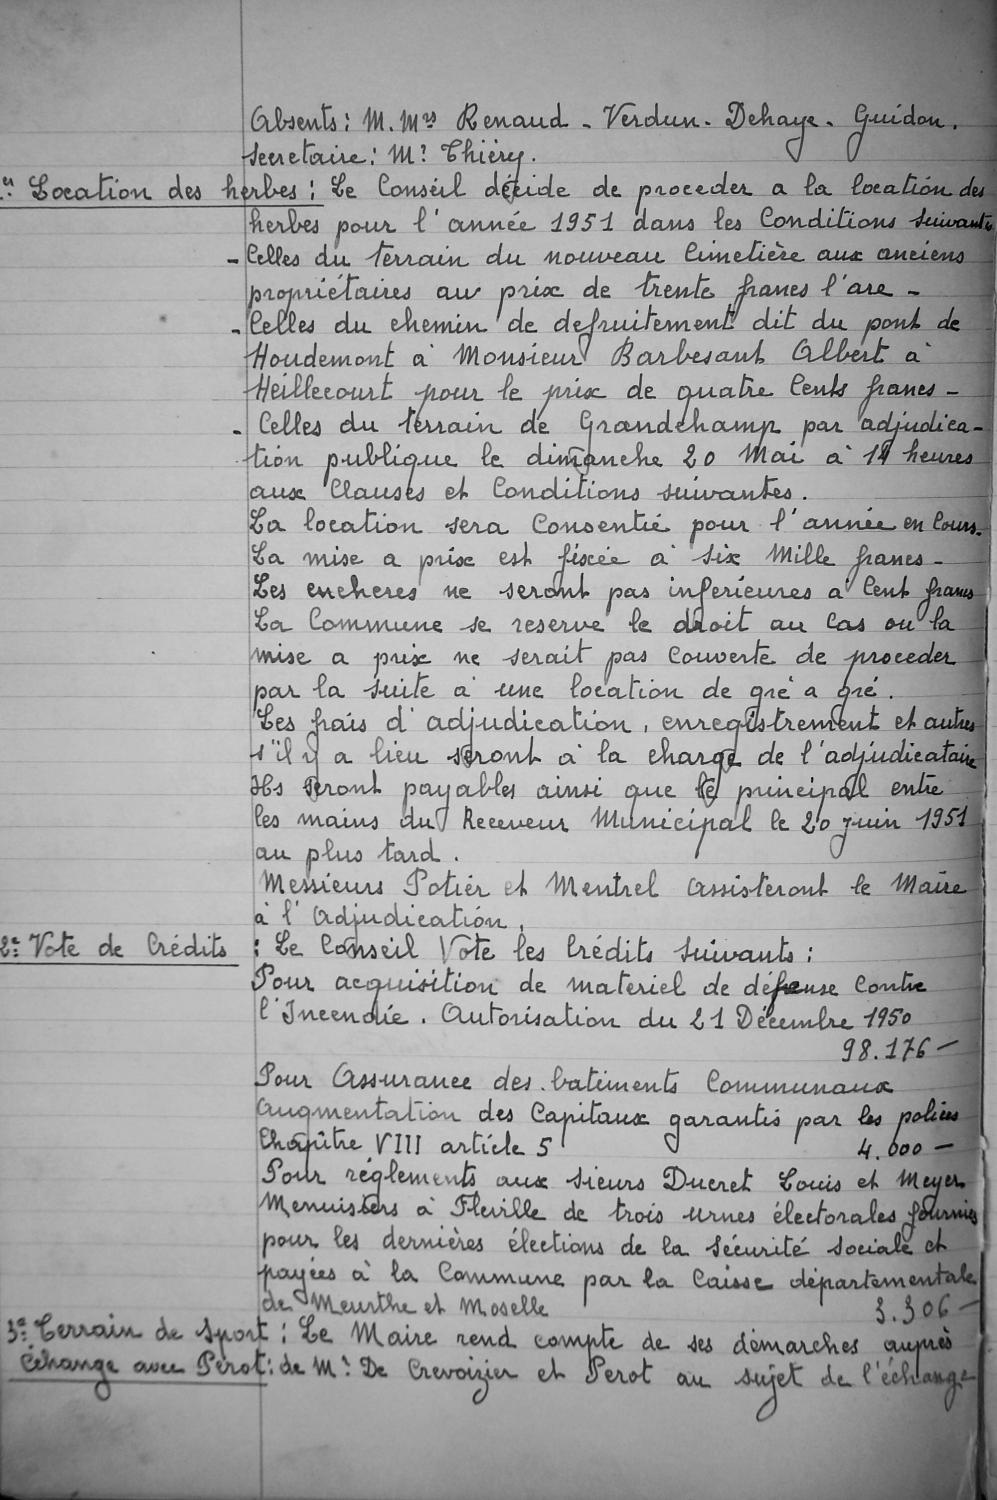 Absents : M. Mrs Renaud - Verdun - Dehaye - Guidon.
Secretaire : Mr Thiéry.
1er Location des herbes : Le Conseil décide de proceder a la location des
herbes pour l'année 1951 dans les Conditions suivantes
- Celles du terrain du nouveau Cimetière aux anciens
propriétaires au prix de trente francs l'are -
- Celles du chemin de defruitement dit du pont de
Houdemont à Monsieur Barbesant Albert à
Heillecourt pour le prix de quatre Cents francs -
- Celles du terrain de Grandchamp par adjudica-
tion publique le dimanche 20 Mai à 14 heures
aux Clauses et Conditions suivantes.
La location sera Consentie pour l'année en Cours.
La mise a prix est fixée à six Mille francs -
Les encheres ne seront pas inferieures a Cent francs
La Commune se reserve le droit au Cas ou la
mise a prix ne serait pas Couverte de proceder
par la suite à une location de gré a gré.
Les frais d'adjudication, enregistrement et autres
s'il y a lieu seront à la charge de l'adjudicataire
Ils seront payables ainsi que le principal entre
les mains du Receveur Municipal le 20 juin 1951
au plus tard.
Messieurs Potier et Mentrel assisteront le Maire
à l'Adjudication.
2e Vote de Crédits : Le Conseil Vote les Crédits suivants :
Pour acquisition de materiel de défense Contre
l'Incendie. Autorisation du 21 Décembre 1950
98.176 -
Pour Assurance des batiments Communaux
Augmentation des Capitaux garantis par les polices
Chapitre VIII article 5 4.000 -
Pour réglements aux sieurs Ducret Louis et Meyer
Menuisiers à Fléville de trois urnes électorales fournies
pour les dernières élections de la Sécurité sociale et
payées à la Commune par la Caisse départementale
de Meurthe et Moselle 3.306 -
3e Terrain de Sport : Le Maire rend compte de ses démarches auprès
Echange avec Pérot : de Mr De Crevoizier et Perot au sujet de l'échange